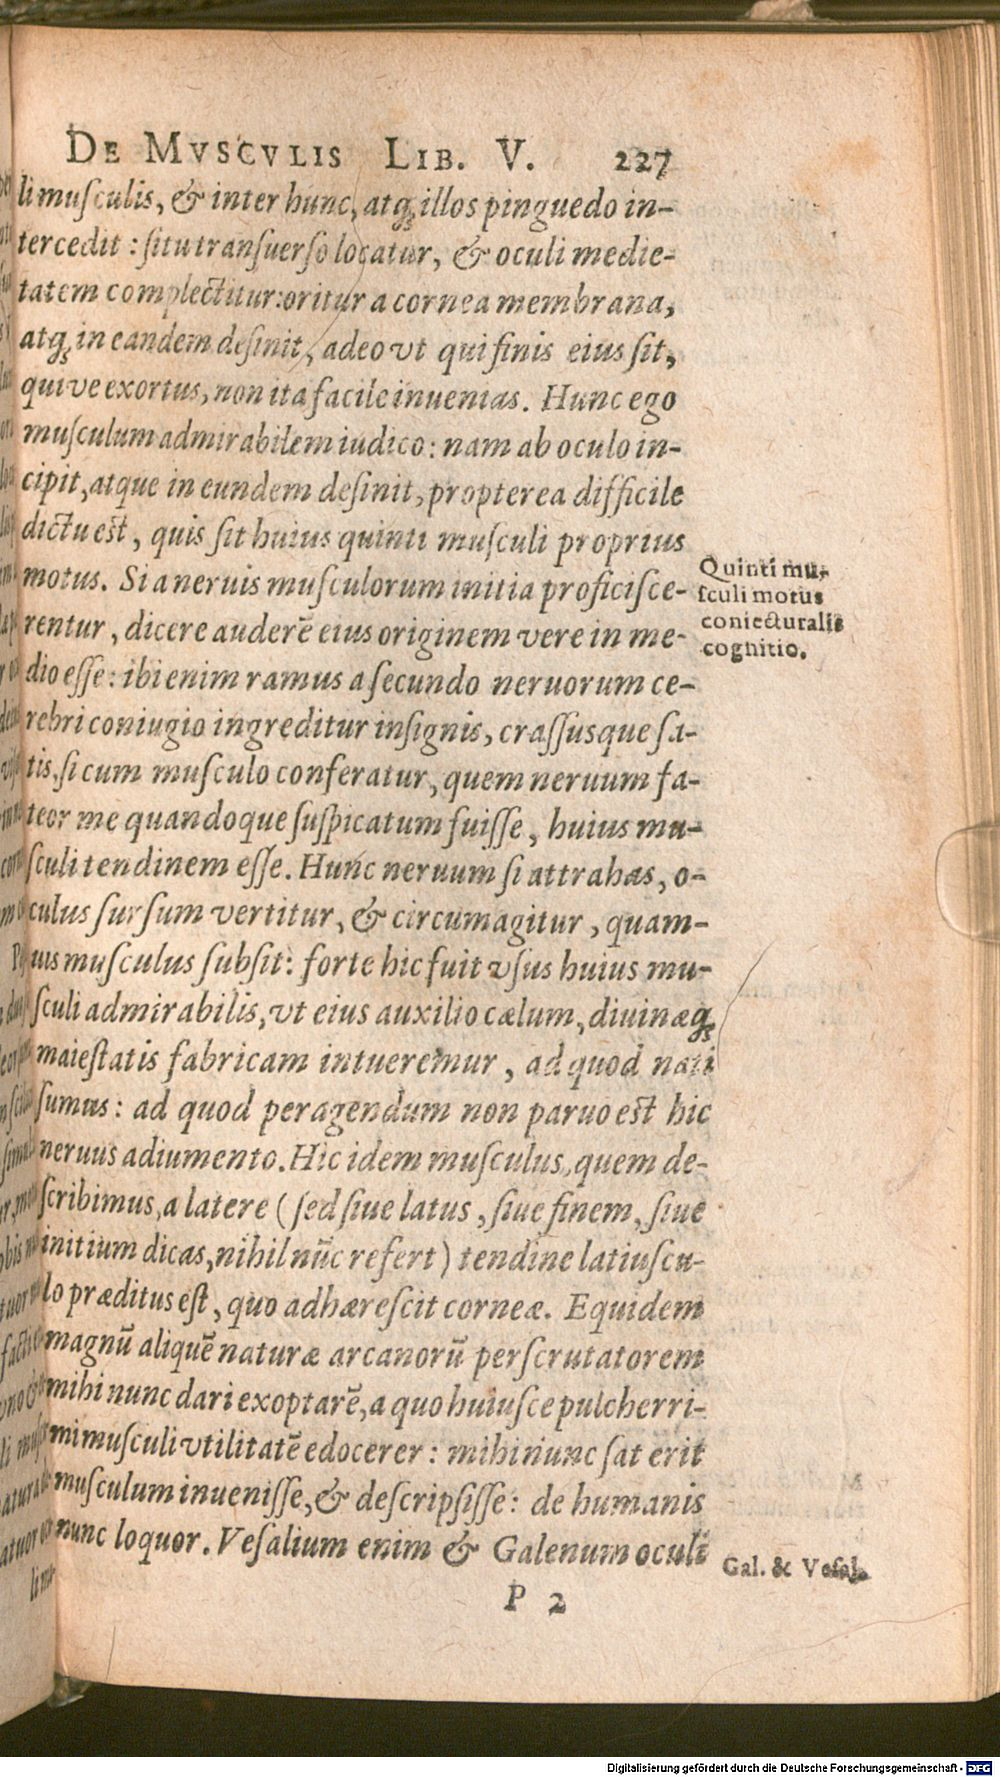 DE MVSCVLIS LIB. V. 227
li muſculis, & inter hunc, atq́; illos pinguedo in-
tercedit : ſitu tranſuerſo locatur, & oculi medie-
tatem complectitur: oritur a cornea membrana,
atq́; in eandem deſinit, adeo vt qui finis eius ſit,
qui ve exortus, non ita facile inuenias. Hunc ego
muſculum admirabilem iudico: nam ab oculo in-
cipit, atque in eundem deſinit, propterea difficile
dictu eſt, quis ſit huius quinti muſculi proprius
motus. Si a neruis muſculorum initia proficiſce-
rentur, dicere auderē eius originem vere in me-
dio eſſe: ibi enim ramus a ſecundo neruorum ce-
rebri coniugio ingreditur inſignis, craſſusque ſa-
tis, ſi cum muſculo conferatur, quem neruum fa-
teor me quandoque ſuſpicatum fuiſſe, huius mu-
ſculi tendinem eſſe. Hunc neruum ſi attrahas, o-
culus ſurſum vertitur, & circumagitur, quam-
uis muſculus ſubſit: forte hic fuit vſus huius mu-
ſculi admirabilis, vt eius auxilio cælum, diuinæq́;
maieſtatis fabricam intueremur, ad quod nati
ſumus: ad quod peragendum non paruo eſt hic
neruus adiumento. Hic idem muſculus, quem de-
ſcribimus, a latere ( ſed ſiue latus, ſiue finem, ſiue
initium dicas, nihil nūc refert ) tendine latiuſcu-
lo præditus eſt, quo adhæreſcit corneæ. Equidem
magnū aliquē naturæ arcanorū perſcrutatorem
mihi nunc dari exoptarē, a quo huiuſce pulcherri-
mi muſculi vtilitatē edocerer: mihi nunc ſat erit
muſculum inueniſſe, & deſcripſiſſe: de humanis
nunc loquor. Veſalium enim & Galenum oculi
P 2
Quinti mu-
ſculi motus
coniecturalis
cognitio.
Gal. & Veſal.
Digitalisierung gefördert durch die Deutsche Forschungsgemeinschaft - DFG